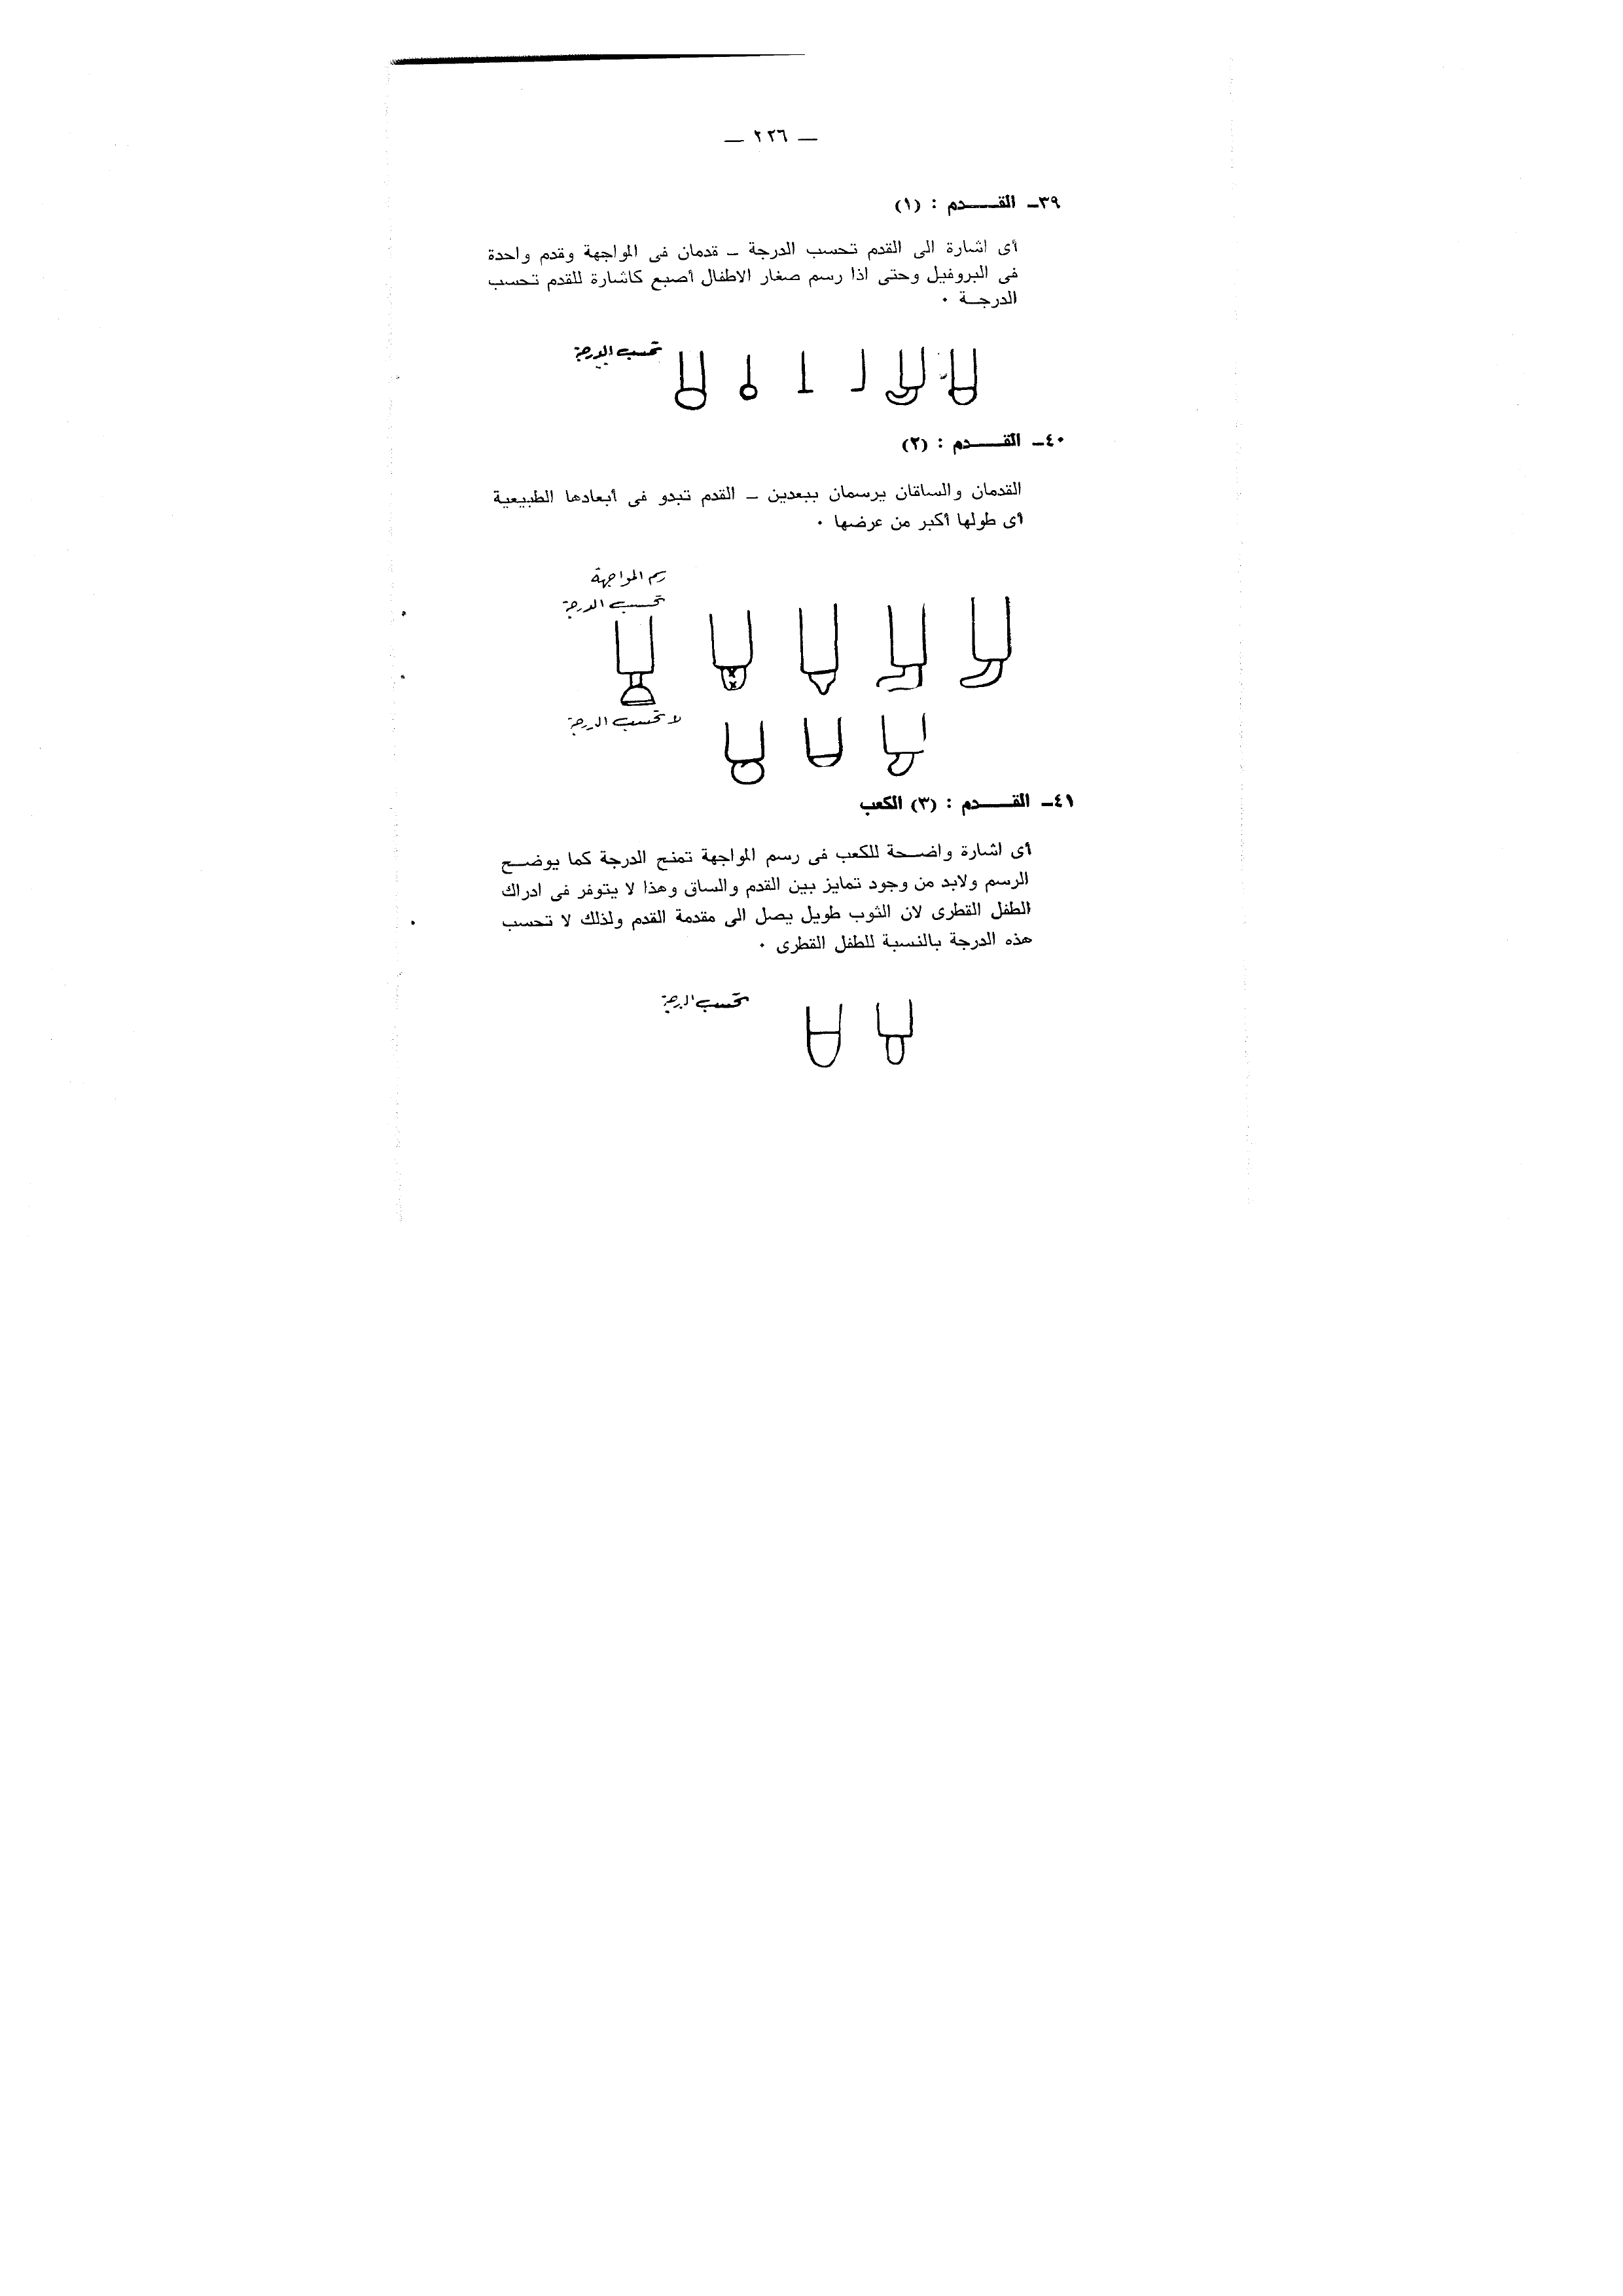 — ٢٢٦ —
٣٩ـ القـــــدم : (١)
أى اشارة الى القدم تحسب الدرجة ـ قدمان فى المواجهة وقدم واحدة
فى البروفيل وحتى اذا رسم صغار الاطفال أصبع كاشارة للقدم تحسب
الدرجــة ٠
تحسب الدرجة
٤٠ـ القـــــدم : (٢)
القدمان والساقان يرسمان ببعدين ـ القدم تبدو فى أبعادها الطبيعية
أى طولها أكبر من عرضها ٠
رسم المواجهة
تحسب الدرجة
لا تحسب الدرجة
٤١ـ القـــــدم : (٣) الكعب
أى اشارة واضــحة للكعب فى رسم المواجهة تمنح الدرجة كما يوضــح
الرسم ولابد من وجود تمايز بين القدم والساق وهذا لا يتوفر فى ادراك
الطفل القطرى لان الثوب طويل يصل الى مقدمة القدم ولذلك لا تحسب
هذه الدرجة بالنسبة للطفل القطرى ٠
تحسب الدرجة